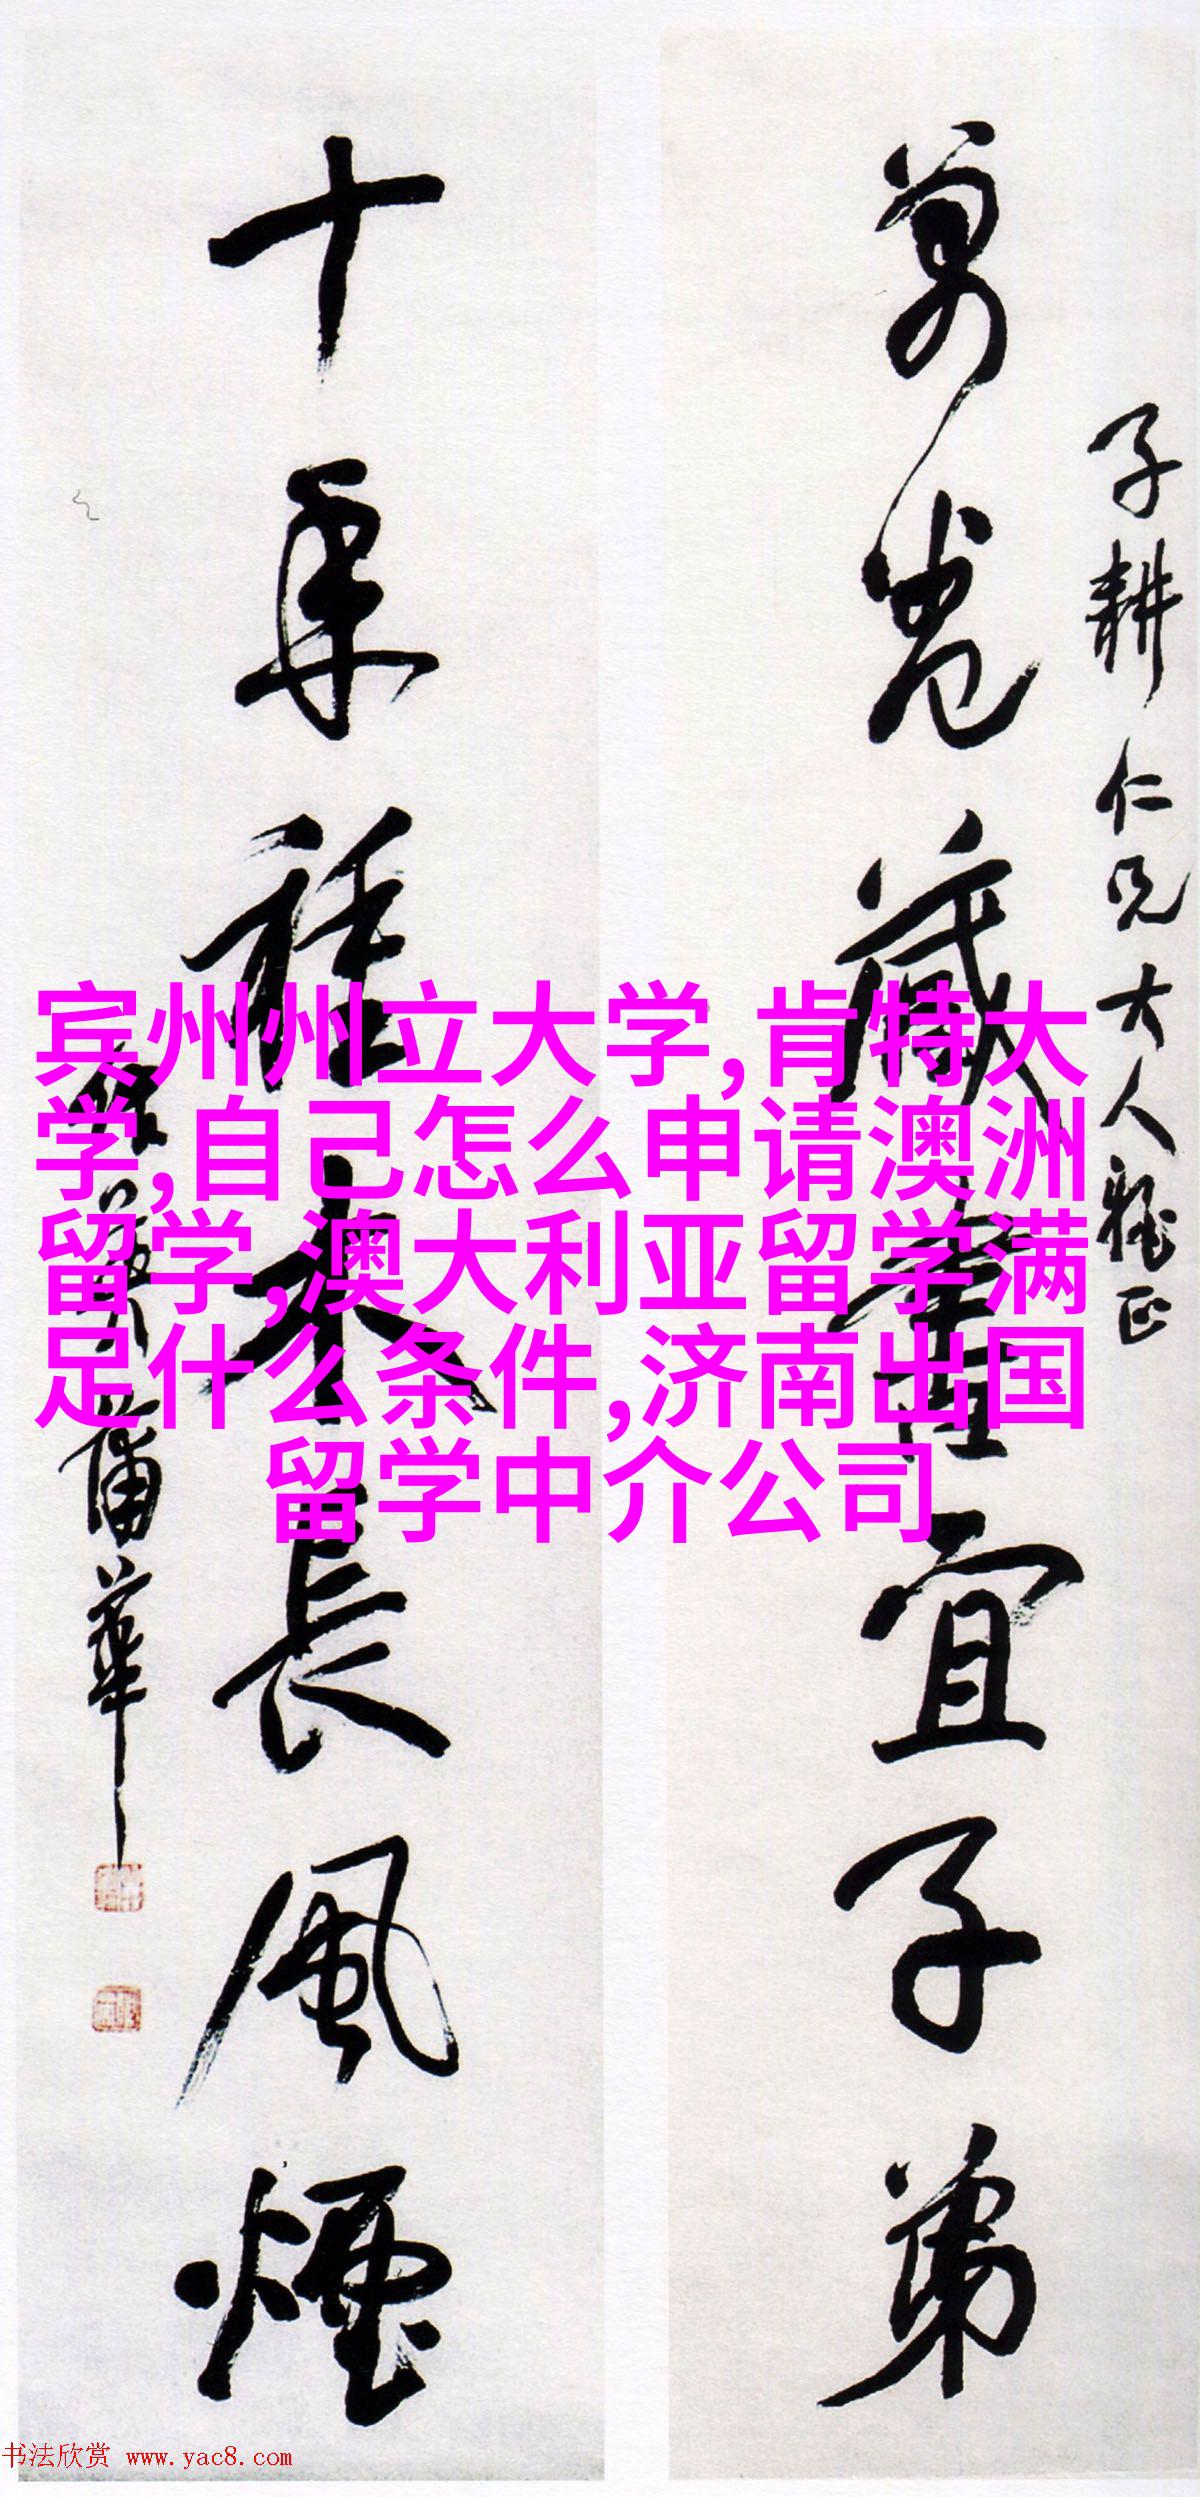 子耕仁兄大人雅正
萬卷藏書宜子弟
十年種木長風煙
蒲華
宾州州立大学,肯特大
学,自己怎么申请澳洲
留学,澳大利亚留学满
足什么条件,济南出国
留学中介公司
书法欣赏 www.yac8.com